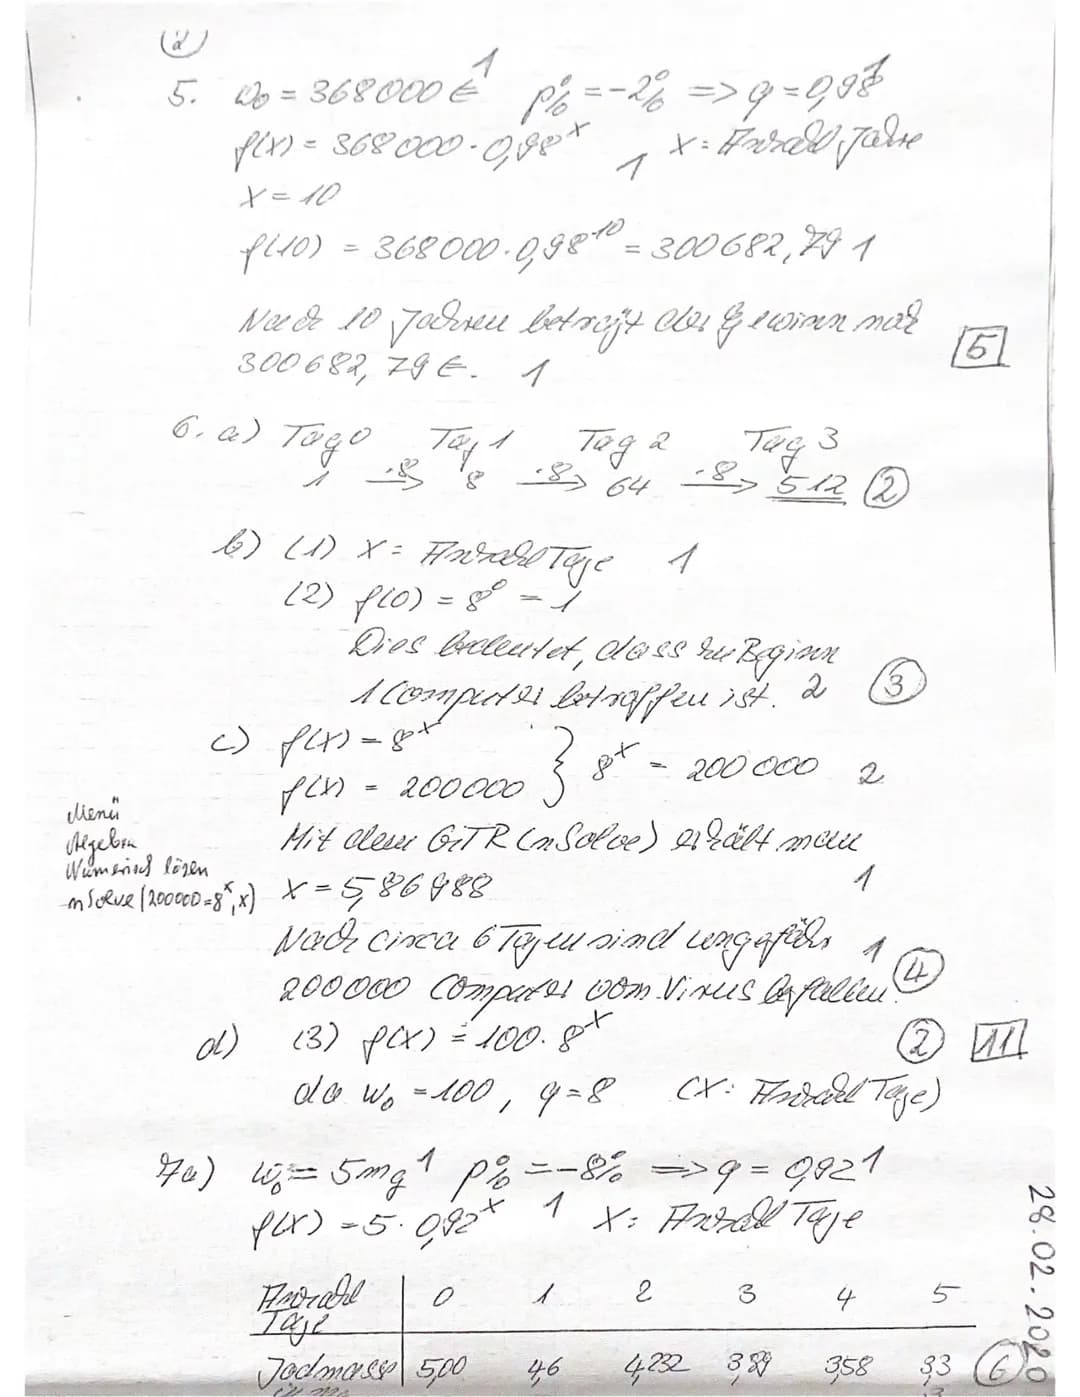 (2)
5. W₀ = 368000 € 1 p% = -2% => q = 0,98 1
f(x) = 368000 · 0,98ˣ 1 x: Anzahl Jahre
x = 10
f(10) = 368000 · 0,98¹⁰ = 300682,79 1
Nach 10 Jahren beträgt der Gewinn nur
300682,79 €. 1 [5]
6. a) Tag 0 Tag 1 Tag 2 Tag 3
1 ·8→ 8 ·8→ 64 ·8→ 512 (2)
b) (1) x = Anzahl Tage 1
(2) f(0) = 8⁰ = 1
Dies bedeutet, dass zu Beginn
1 Computer betroffen ist. 2 (3)
c) f(x) = 8ˣ
f(x) = 200000 } 8ˣ = 200 000 2
Mit dem GTR (nSolve) erhält man
x = 5,86988 1
Menü
Algebra
Numerisch lösen
nSolve(200000=8ˣ,x)
Nach circa 6 Tagen sind ungefähr 1
200000 Computer vom Virus befallen. (4)
d) (3) f(x) = 100 · 8ˣ (2) [11]
da W₀ = 100, q = 8 (x: Anzahl Tage)
7a) W₀ = 5mg 1 p% = -8% => q = 0,92 1
f(x) = 5 · 0,92ˣ 1 x: Anzahl Tage
Anzahl Tage 0 1 2 3 4 5
Jodmasse 5,00 4,6 4,232 3,89 3,58 3,3 (6)
in mg
28.02.2020